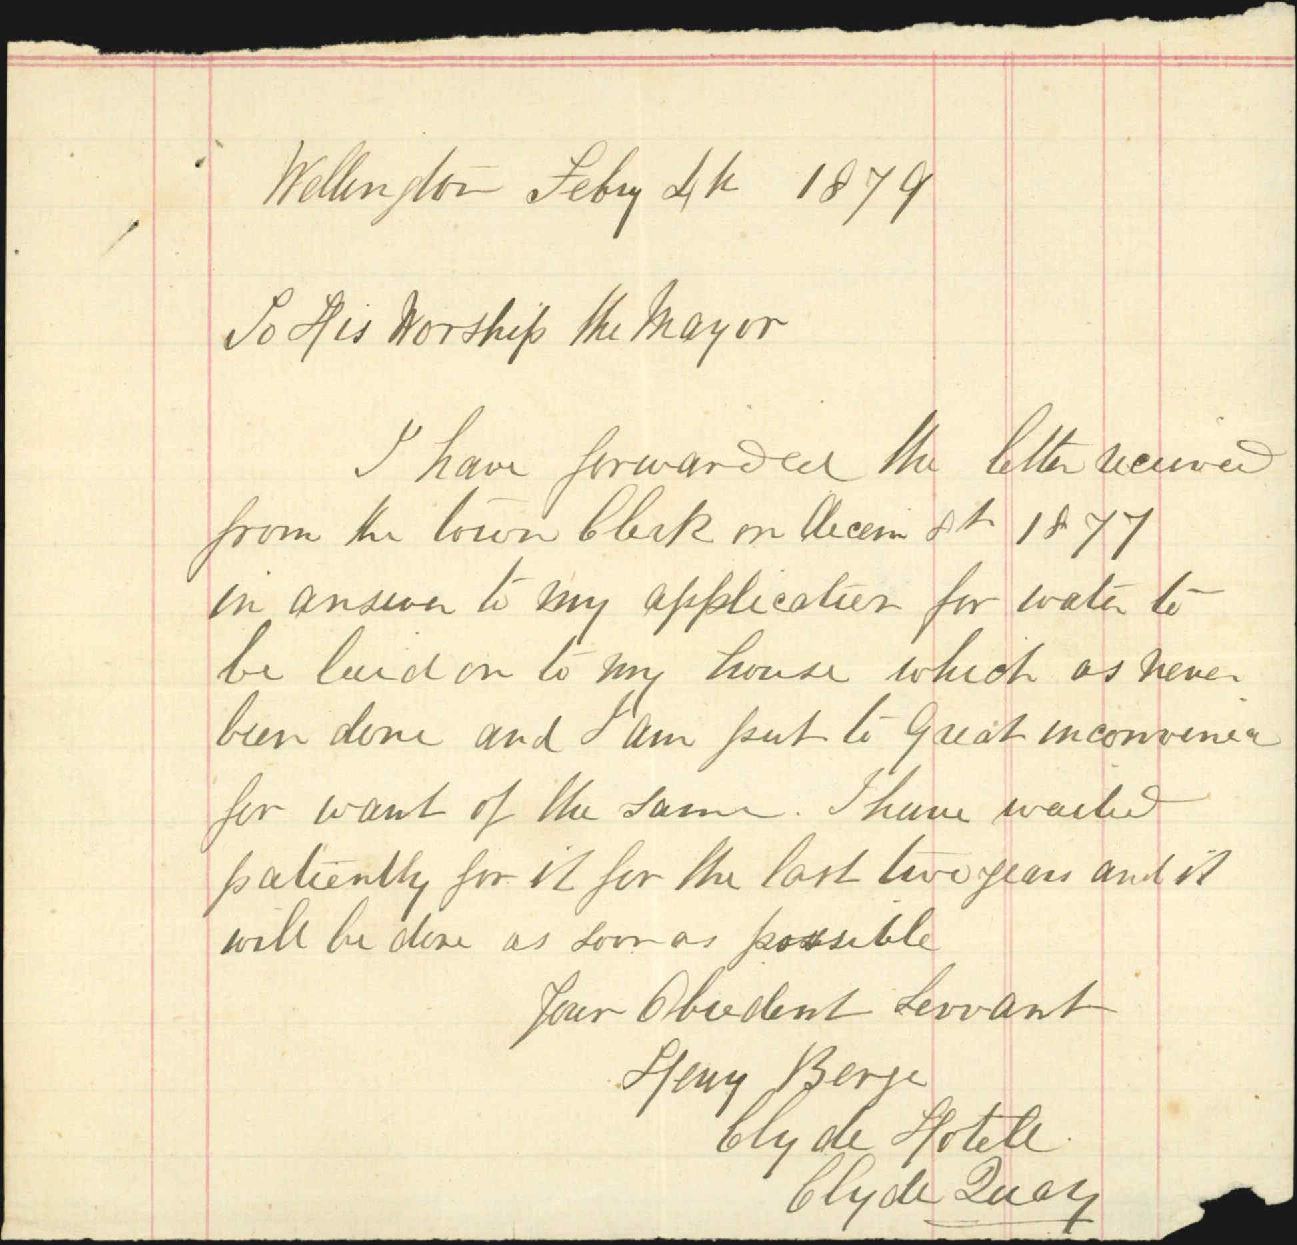 Wellington Feby 4th 1879
To His Worship the Mayor
I have forwarded the letter received
from the town Clerk on Decem 8th 1877
in answer to my application for water to
be laid on to my house which as never
been done and I am put to Great inconvenience
for want of the same. I have waited
patiently for it for the last two years and it
will be done as soon as possible
Your Obiedent Servant
Henry Berge
Clyde Hotell
Clyde Quay